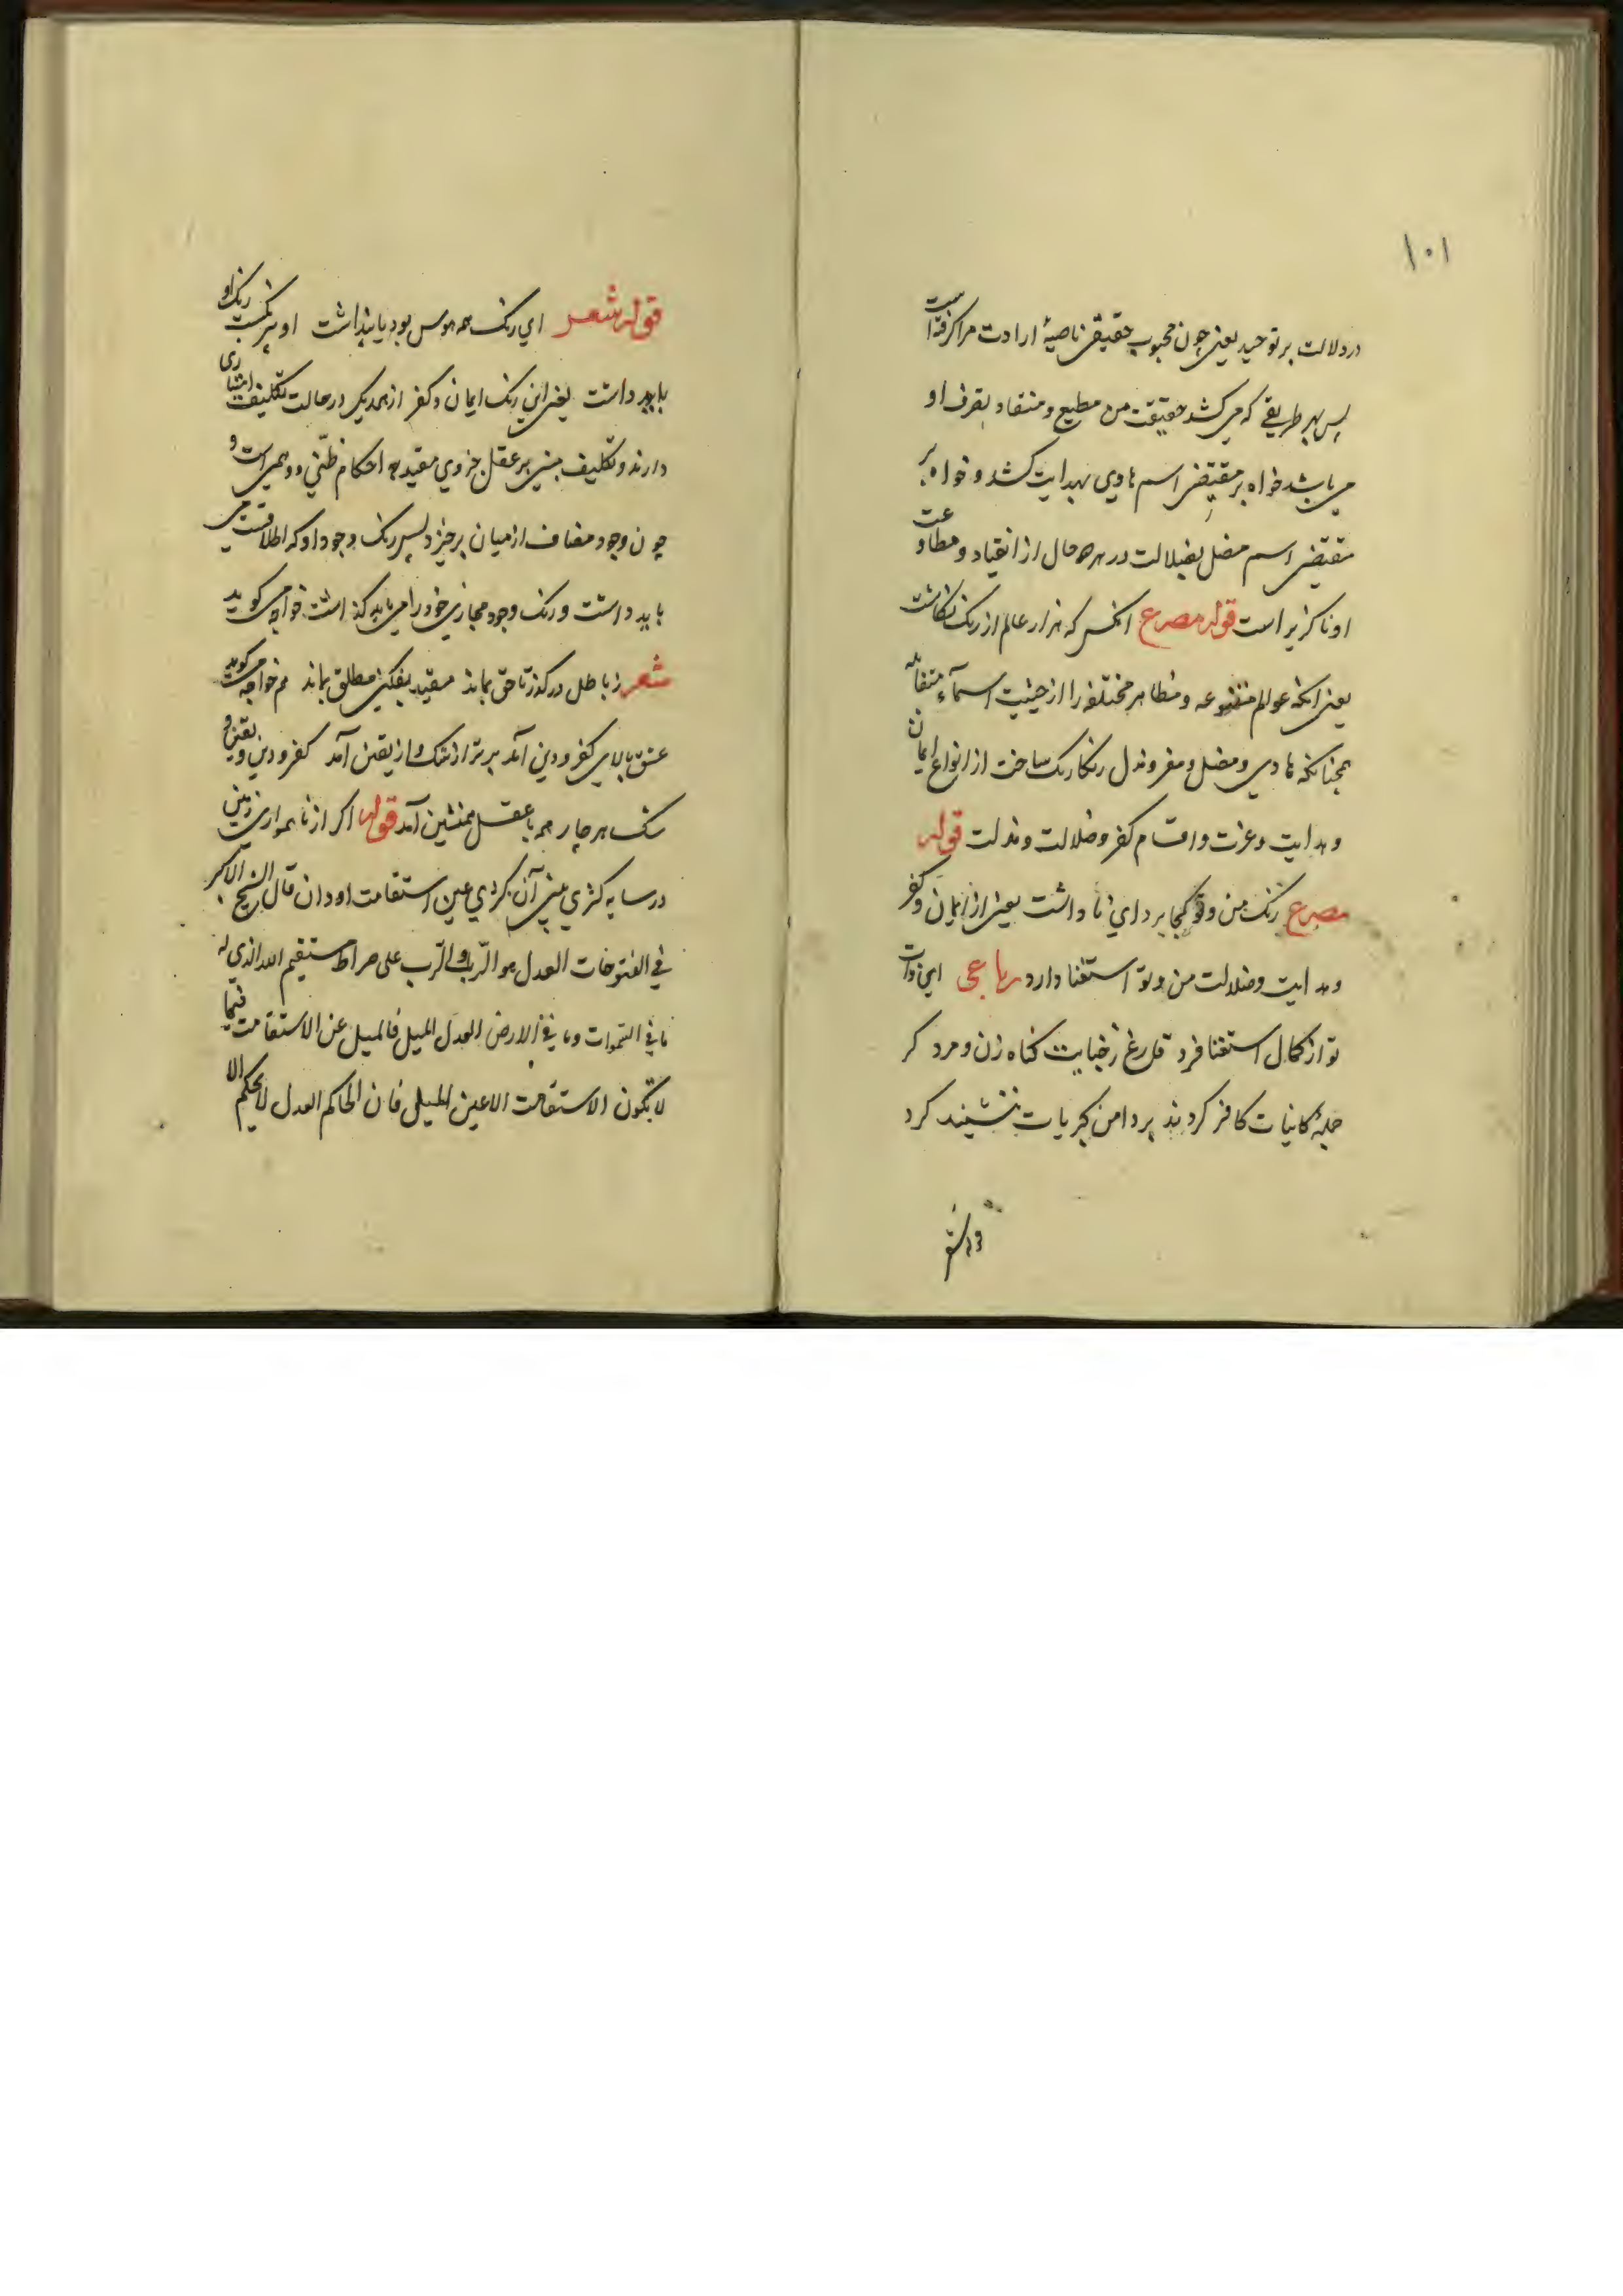 ١٠١
در دلالت بر توحید یعنی چون محبوب حقیقی ناصیهٔ ارادت مرا کرفته است
پس بهر طریقی که می کشد حقیقت من مطیع و منقاد بتصرف او
می باشد خواه بر مقتضی اسم هادی بهدایت کشد و خواه بر
مقتضی اسم مضل بضلالت در هر حال از انقیاد و مطاوعت
او ناکزیر است قوله مصرع انکس که هزار عالم از رنک نکاشت
یعنی انکه عوالم متنوعه و مظاهر مختلفه را از حیثیت اسمآء متقابله
همجنانکه هادی و مضل و معز و مذل رنکارنک ساخت از انواع ایمان
و هدایت و عزت و اقسام کفر و ضلالت و مذلت قوله
مصرع رنک من و تو کجا برد ای نا داشت یعنی از ایمان و کفر
و هدایت و ضلالت من و تو استغنا دارد رباعی ای ذات
تو از کمال استغنا فرد فارغ ز خبایث کناه زن و مرد کر
جملهٔ کاینات کافر کردند بر دامن کبریات ننشیند کرد
قوله شعر
قوله شعر ای رنک همه هوس بود یا پنداشت او بی رنکست رنک او
باید داشت یعنی این رنک ایمان و کفر از همدیکر در حالت تکلیف امتیازی
دارند و تکلیف مبنی بر عقل جزوی مقید به احکام ظنّی و وهمی است و
چون وجود مضاف از میان برخیزد پس رنک وجود او که اطلاقست می
باید داشت و رنک وجود مجازی خود را می باید کذاشت خواجه می کوید
شعر ز باطل در کذر تا حق بماند مقید بفکن مطلق بماند هم خواجه می کوید
عشق بالای کفر و دین آمد برتر از شک و از یقین آمد کفر و دین و یقین و
شک هر چار همه با عقل همنشین آمد قوله اکر از ناهمواری زمین
در سایه کژی بینی آن کژی عین استقامت او دان قال الشیخ الاکبر
فی الفتوحات العدل هو الرّب والرّب علی صراط مستقیم العدالذی له
ما فی السّموات و ما فی الارض العدل المیل فالمیل عن الاستقامت فیما
لا تکون الاستقامت الا عین المیل فان الحاکم العدل لا یحکم الا